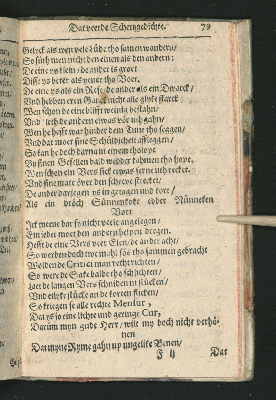 Dat veerde Schertzgedichte. 79
Gelyck als twey vele lüde tho samen wandern/
So süth men nicht den einen als den andern:
De eine ys klein/ de ander is groet
Disse ys beter als yener tho Voet.
De eine ys als ein Rese/ de ander als ein Dwarck/
Und hebben eren Gang nicht alle glyke starck
Wen schon de eine blifft weinich bestahn/
Und leth de andern etwas vör uth gahn/
Wen he hefft wat hinder dem Tune tho seggen/
Und dar moet sine Schüldicheit affleggen/
So kan he doch darna in einem
Synen Gesellen bald wedder kahmen tho hope.
Wen schon ein Vers sick etwas ferne uth recket/
Und sine mate över den schreve strecket/
De ander dar jegen ys in
Als ein dröch Sünnenkoke edder Nünneken
Vort
Ick mene dar sy nicht vele angelegen/
Ein jeder moet den andern helpen dregen.
Hefft de eine Vers voer Elen/ de ander acht/
So werden doch twe mahl sös tho sammen gebracht
Wolden de Critici man recht richten/
So were de Sake balde tho schlichten/
Laet de langen Vers schniden in stücken/
Und etlyke stücke an de korten flicken/
So kriegen se alle rechte Mensur,
Dat ys jo eine lichte und geringe Cur,
Darüm myn gude Herr/ wilt my doch nicht verhö-
nen
Dat myne Ryme gahn up ungelike Benen/
F ij Dat